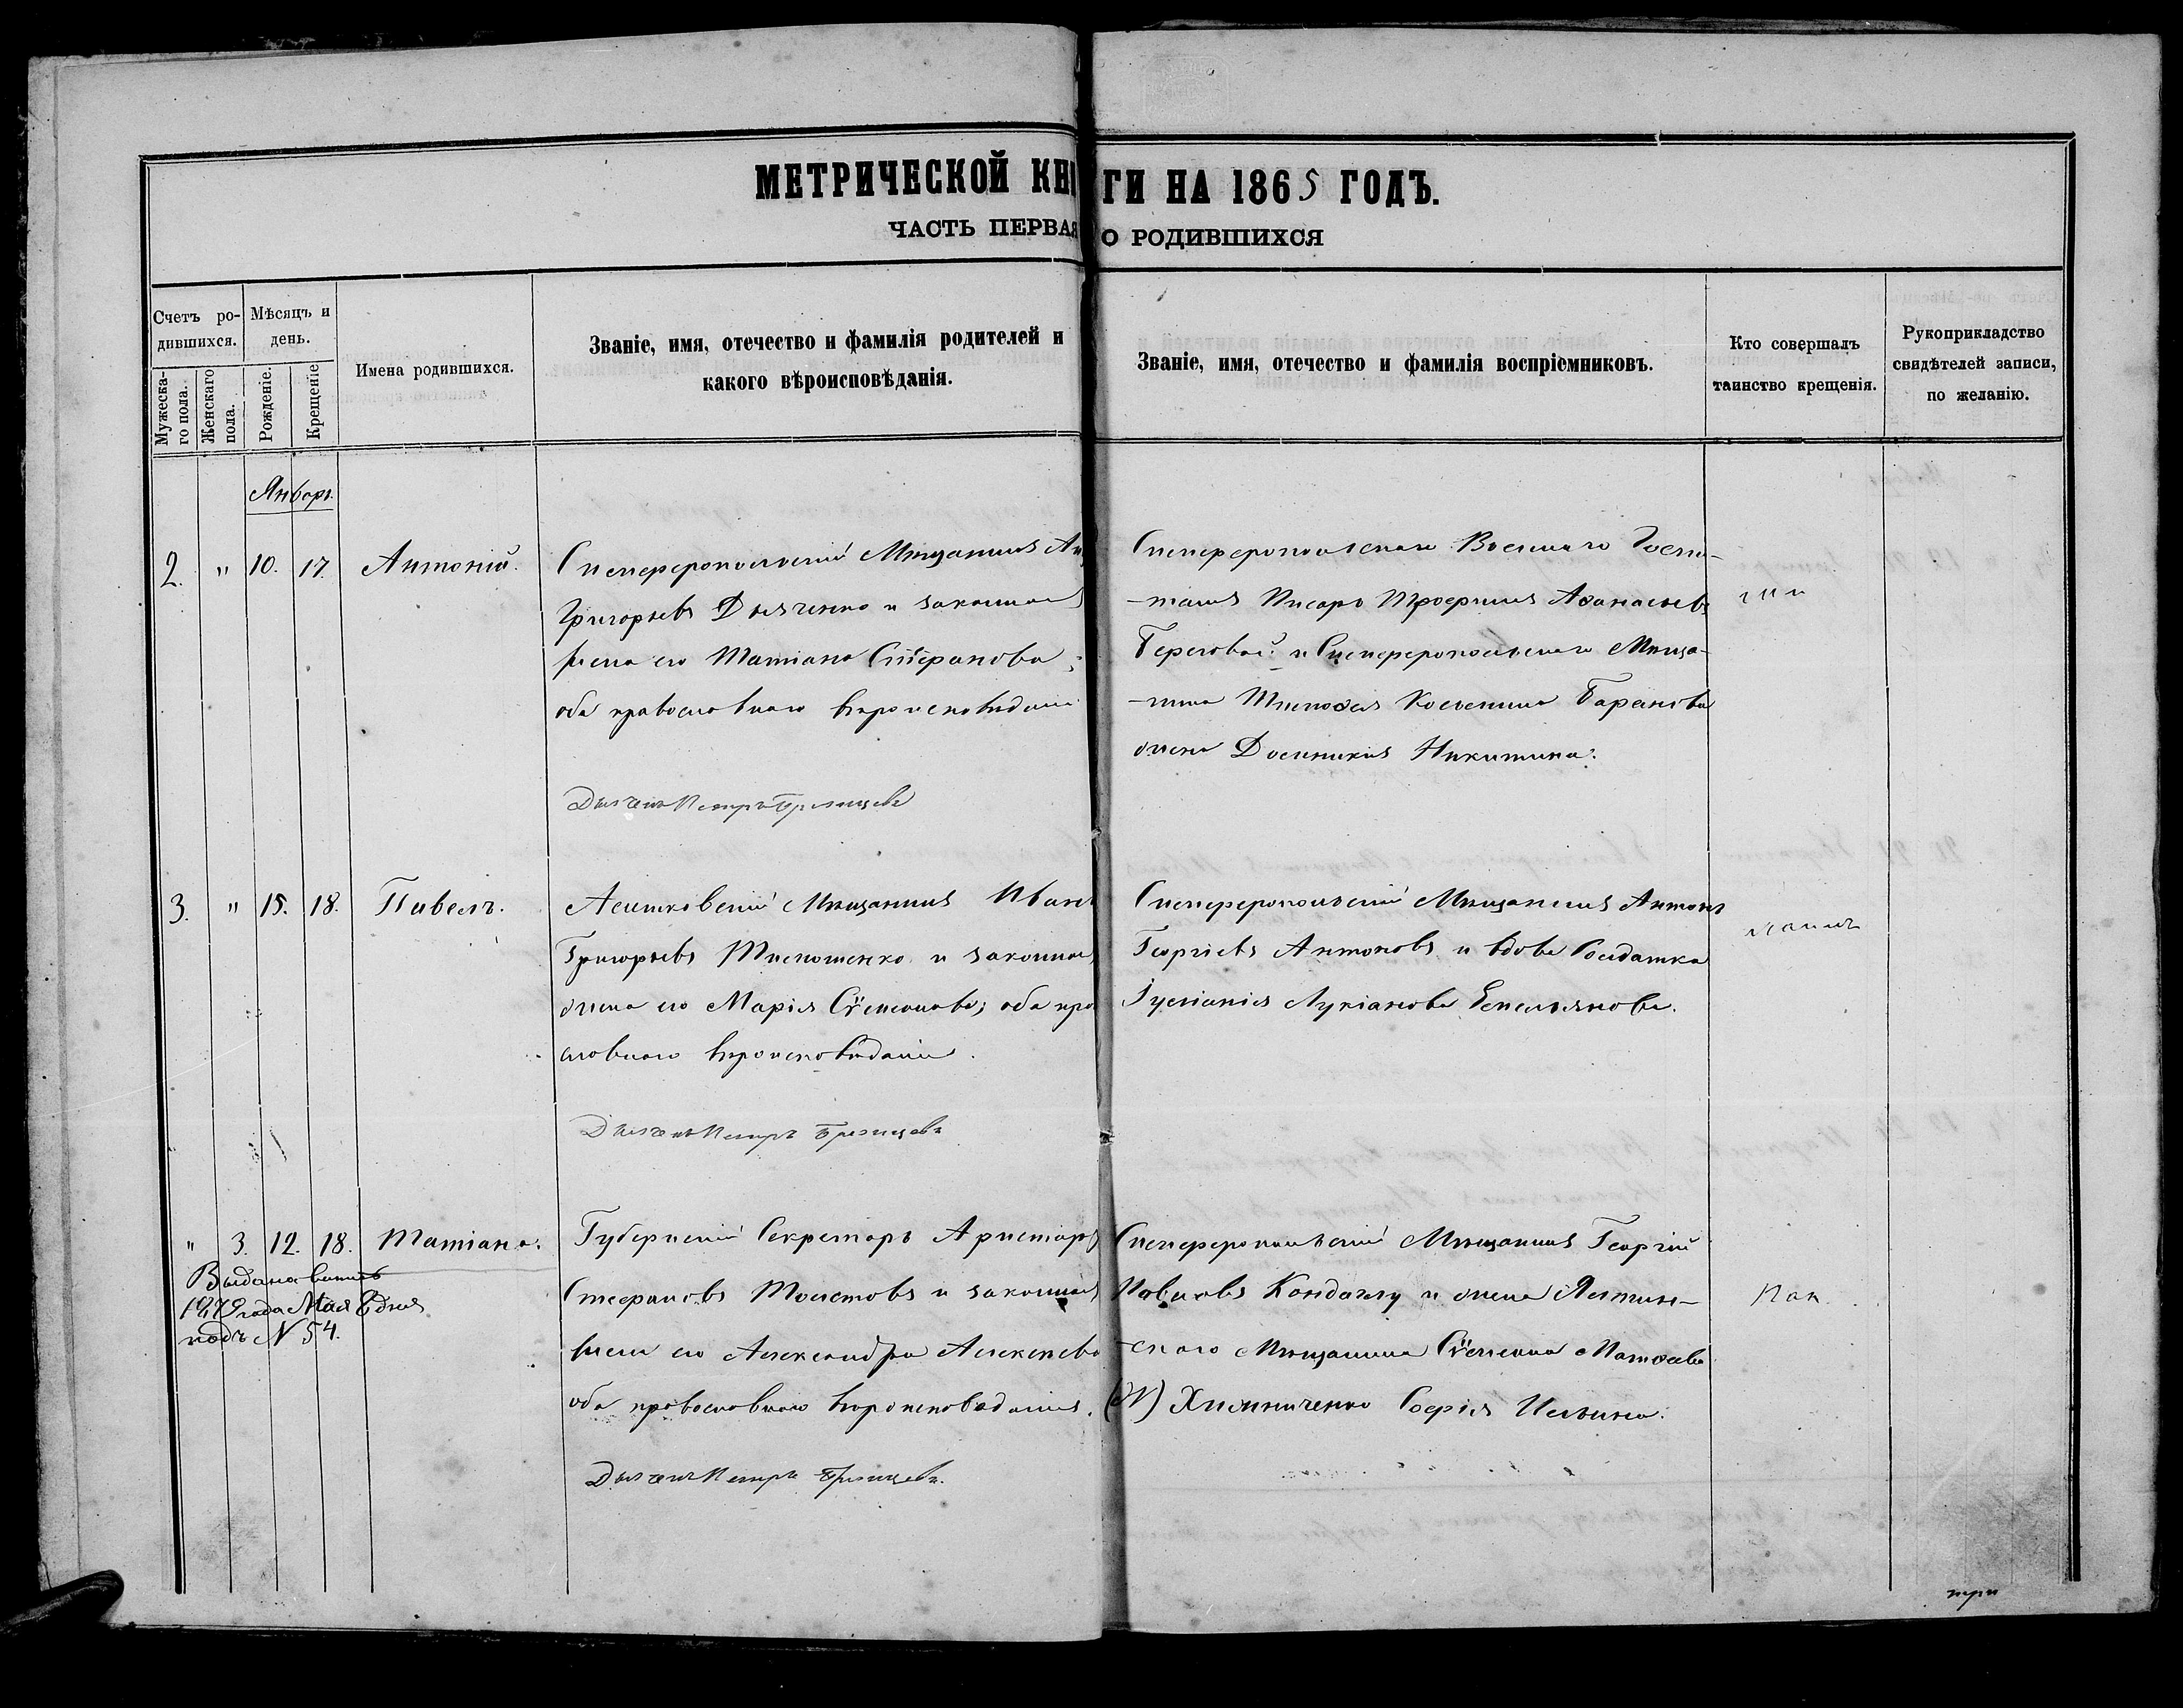 МЕТРИЧЕСКОЙ КНИГИ НА 1865 ГОДЪ.
ЧАСТЬ ПЕРВАЯ О РОДИВШИХСЯ
Счетъ ро-
дившихся.
Мужеска-
го пола.
Женскаго
пола.
Мѣсяцъ и
день.
Рожденіе.
Крещеніе
Имена родившихся.
Званіе, имя, отечество и фамилія родителей и
какого вѣроисповѣданія.
Званіе, имя, отечество и фамилія воспріемниковъ.
Кто совершалъ
таинство крещенія.
Рукоприкладство
свидѣтелей записи,
по желанію.
Январь.
2. " 10. 17. Антоній.
Симферопольскій Мѣщанинъ
Григорьевъ Дьяченко и законная
жена его Татіана Стефанова;
оба православнаго вѣроисповѣданія
Симферопольскаго Военнаго Госпи-
-таля Писарь Трофимъ Аѳанасьевъ
Береговой и Симферопольскаго Мѣща-
-нина Тимоѳея Козьмина Баранова
жена Домникія Никитина.
Дьячекъ Петръ
3. " 15. 18. Павелъ.
Мѣщанинъ Иванъ
Григорьевъ Тимошенко и законная
жена его Марія Сѵмеонова; оба пра
славнаго вѣроисповѣданія.
Симферопольскій Мѣщанинъ Антонъ
Георгіевъ Антоновъ и вдова Солдатка
Іуліанія Лукіанова Емельянова.
Дьячекъ Петръ
" 3. 12. 18. Татіана.
Выдана выпись
1879 года Мая 8 дня
подъ № 54.
Губернскій Секретарь Аристархъ
Стефановъ Толстовъ и законная
жена его Александра Алексѣева
оба православнаго вѣроисповѣданія.
Симферопольскій Мѣщанинъ Георгій
Павловъ и жена Ялтин-
-скаго Мѣщанина Сѵмеона Матѳеева
Химниченко Софія Ильина.
Дьячекъ Петръ
при